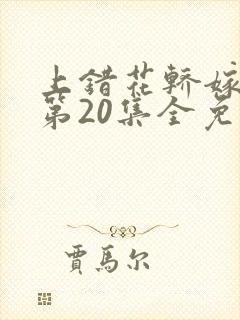 上错花轿嫁
第20集全免
贾馬尔